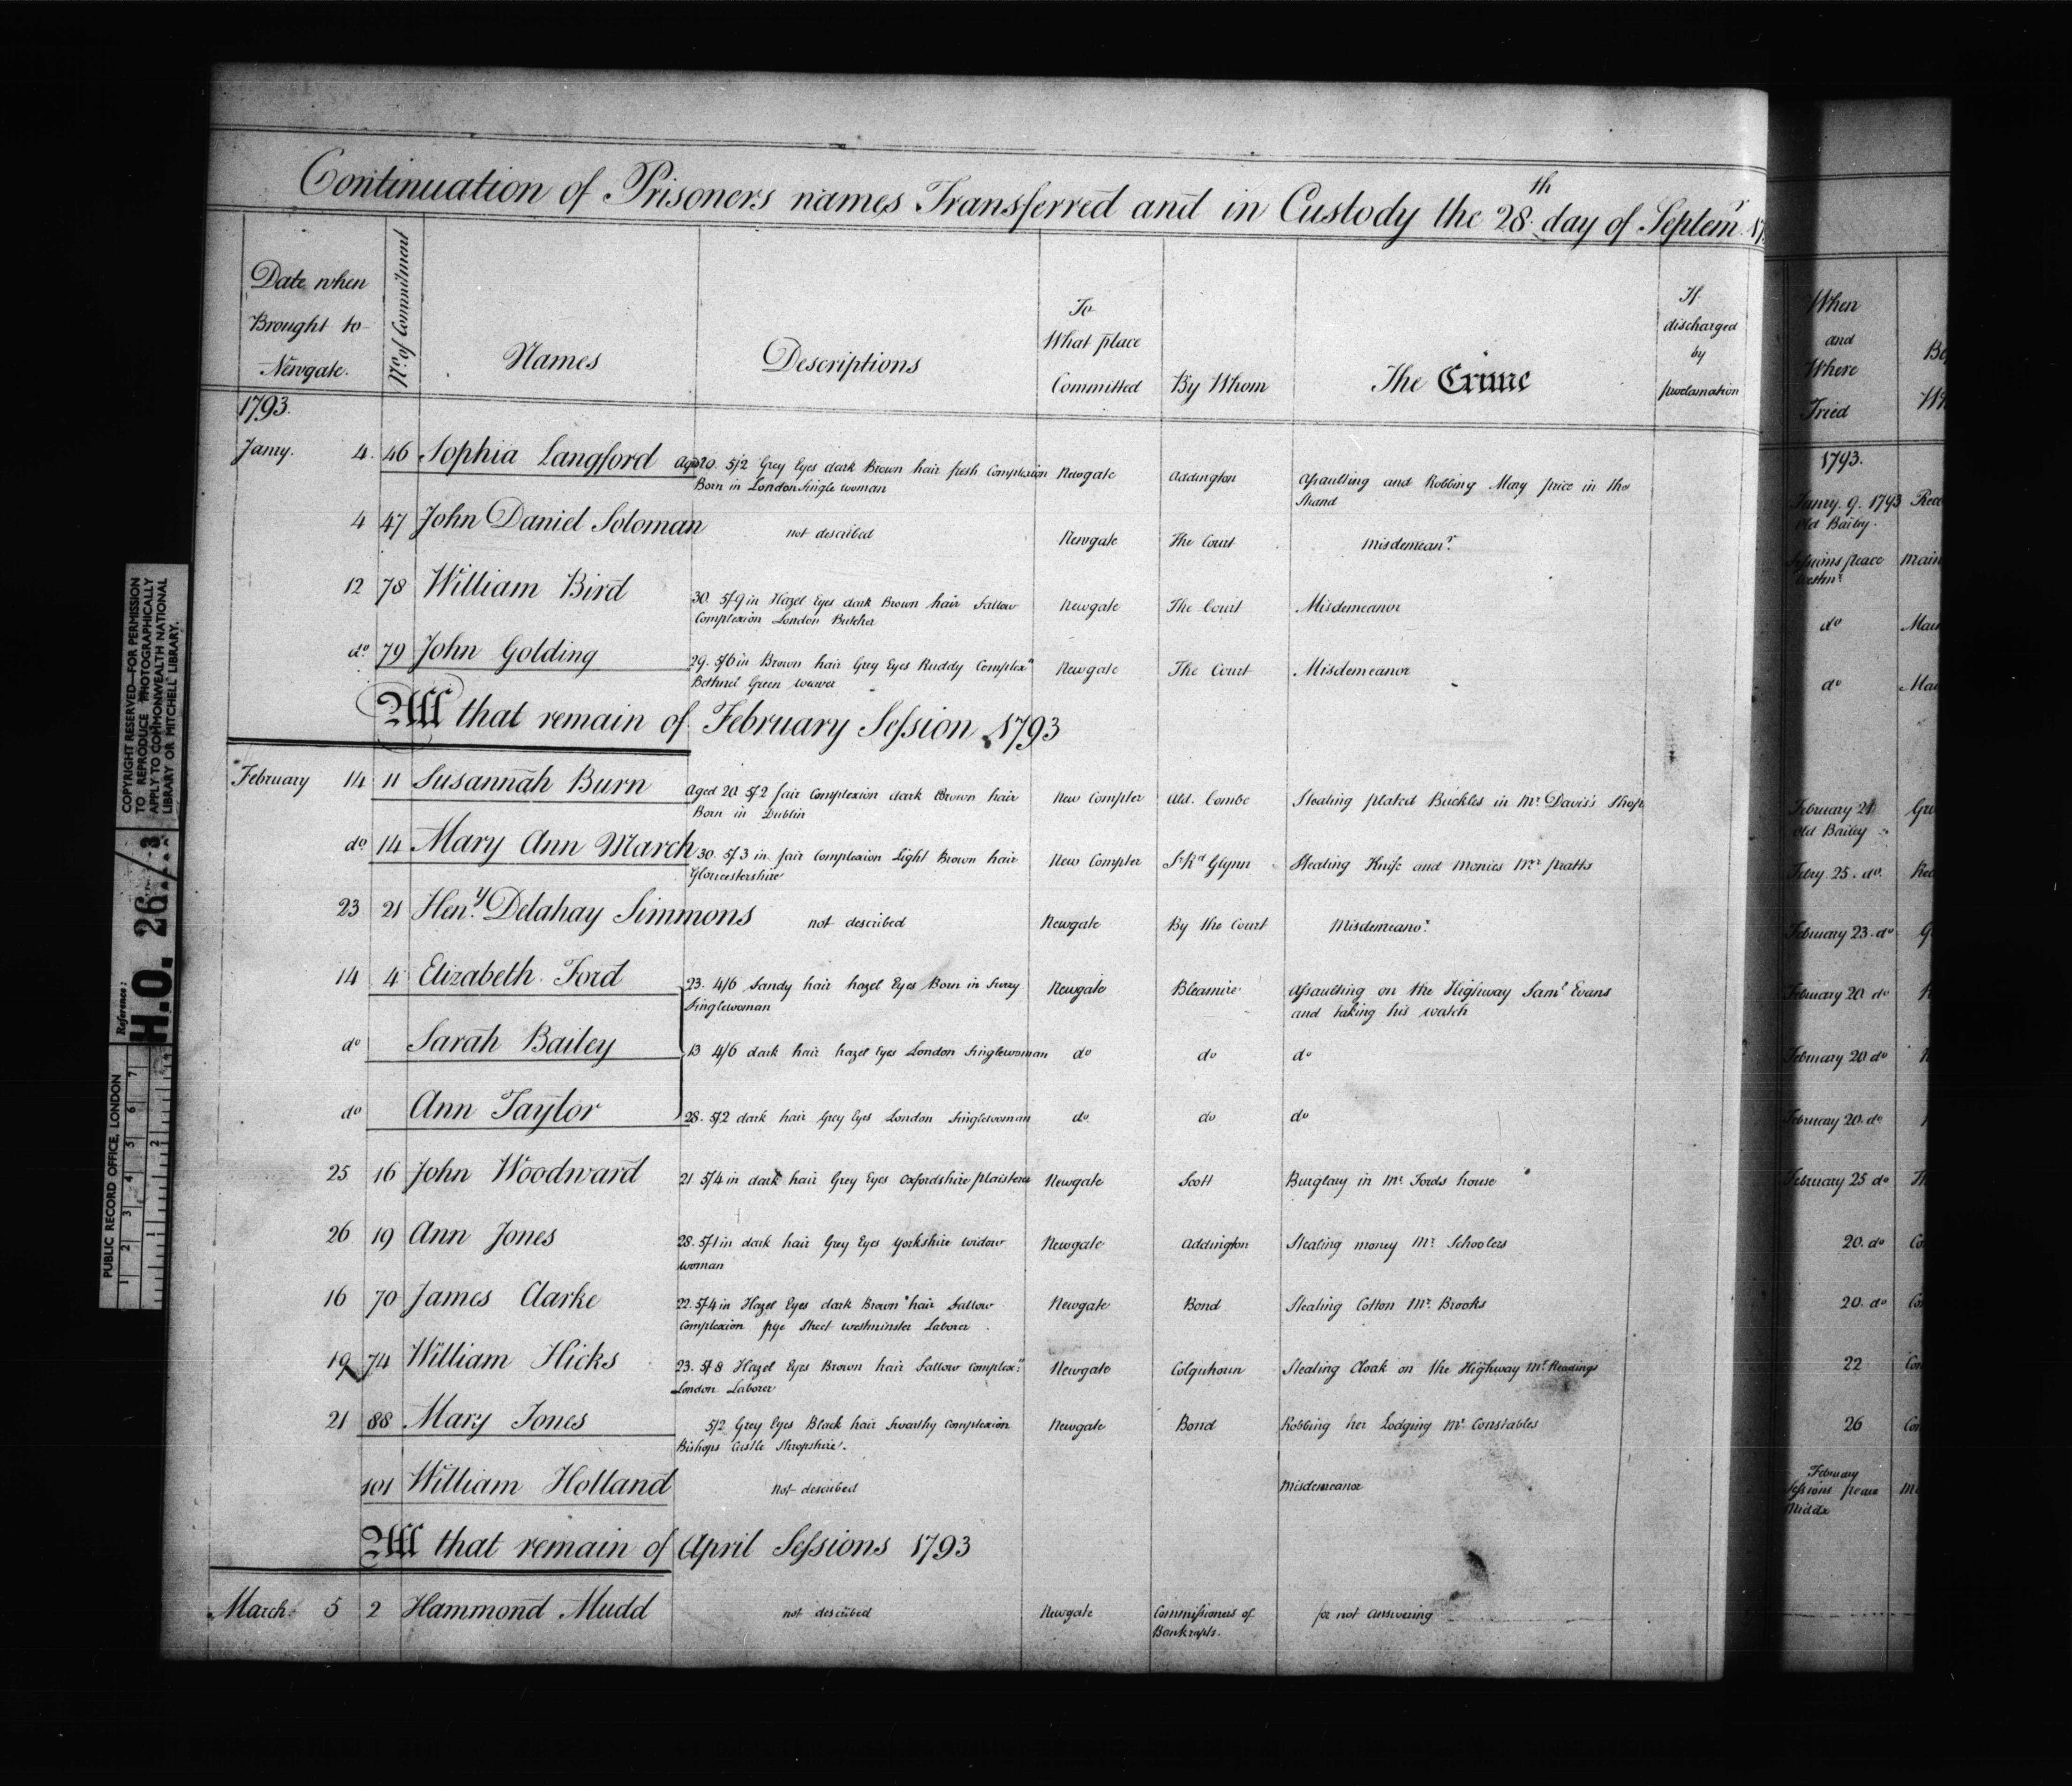 Continuation of Prisoners names Transferred and in Custody the 28th day of Septemr 17
Date when Brought to Newgate.
No. of Commitment
Names
Descriptions
To What place Committed
By Whom
The Crime
If discharged by proclamation
When and Where Tried
1793.
1793.
Janry. 4. 46 Sophia Langford aged 20. 5/2 Grey Eyes dark Brown hair fresh Complexion Newgate Addington Assaulting and Robbing Mary price in the
Born in London Single woman Strand
Janry. 9. 1793
Old Bailey.
4 47 John Daniel Soloman not described Newgate The Court Misdemeanr.
Sessions peace
Westmr
12 78 William Bird 30. 5/9 in Hazel Eyes dark Brown hair Sallow Newgate The Court Misdemeanor do
Complexion London Butcher
do 79 John Golding 29. 5/6 in Brown hair Grey Eyes Ruddy Complexn Newgate The Court Misdemeanor do
Bethnel Green weaver
All that remain of February Session 1793
February 14 11 Susannah Burn Aged 20 5/2 fair Complexion dark Brown hair New Compter Ald. Combe Stealing plated Buckles in Mr Davis's Shop
Born in Dublin
February 21
Old Bailey
do 14 Mary Ann March 30. 5/3 in fair Complexion Light Brown hair New Compter Sr Rd Glynn Stealing Knife and Monies Mr pratts Febry. 25. do.
Gloucestershire
23 21 Heny. Delahay Simmons not described Newgate By the Court Misdemeanor. February 23. do
14 4 Elizabeth Ford 23. 4/6 Sandy hair hazel Eyes Born in Surry Newgate Bleamire Assaulting on the Highway Saml Evans February 20 do
Singlewoman and taking his watch
do Sarah Bailey 13 4/6 dark hair hazel Eyes London Singlewoman do do do February 20 do
do Ann Taylor 28. 5/2 dark hair Grey Eyes London Singlewoman do do do February 20. do
25 16 John Woodward 21 5/4 in dark hair Grey Eyes Oxfordshire plaisterer Newgate Scott Burglary in Mr Fords house February 25 do
26 19 Ann Jones 28. 5/1 in dark hair Grey Eyes Yorkshire widow Newgate Addington Stealing money Mr Schoolers 20. do
woman
16 70 James Clarke 22. 5/4 in Hazel Eyes dark Brown hair Sallow Newgate Bond Stealing Cotton Mr. Brooks 20. do
Complexion pye Street westminster Laborer
19 74 William Hicks 23. 5/8 Hazel Eyes Brown hair Sallow Complexn: Newgate Colquhoun Stealing Cloak on the Highway Mr. Readings 22
London Laborer
21 88 Mary Jones 5/2 Grey Eyes Black hair Swarthy Complexion Newgate Bond Robbing her Lodging Mr Constables 26
Bishops Castle Shropshire.
101 William Holland not described Misdemeanor
February
Sessions peace
Middx
All that remain of April Sessions 1793
March 5 2 Hammond Mudd not described Newgate Commissioners of for not answering
Bankrupts.
COPYRIGHT RESERVED—FOR PERMISSION
TO REPRODUCE PHOTOGRAPHICALLY
APPLY TO COMMONWEALTH NATIONAL
LIBRARY OR MITCHELL LIBRARY.
Reference:
H.O. 26/3
PUBLIC RECORD OFFICE, LONDON
1 2 3 4 5 6 7
1 2